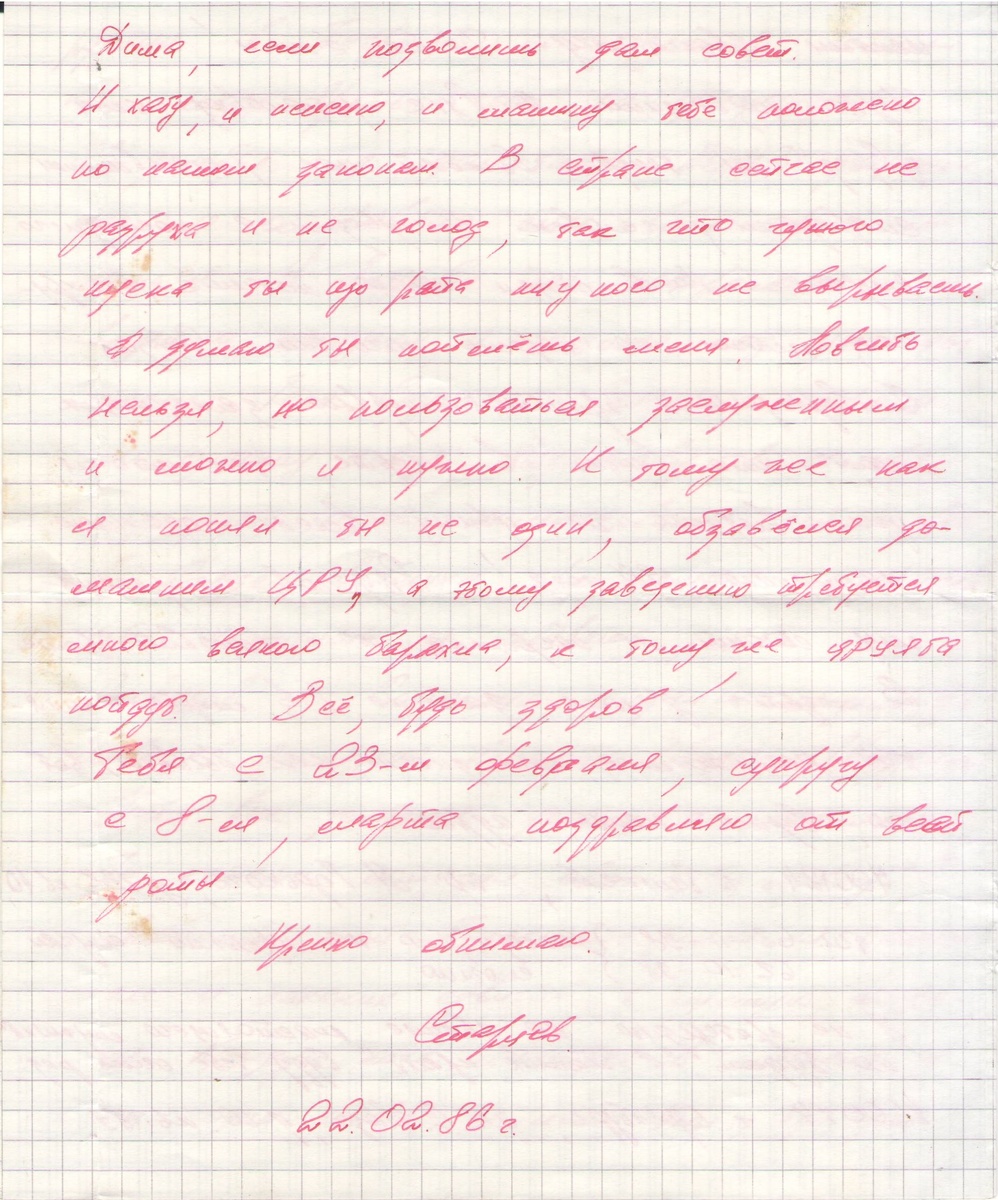 Дима, если позволишь дам совет.
И хату, и пенсию, и машину тебе положено
по нашим законам. В стране сейчас не
разруха и не голод, так что чужого
куска ты изо рта ни у кого не вырываешь.
Я думаю ты поймёшь меня. Ловчить
нельзя, но пользоваться заслуженным
и можно и нужно. К тому же как
я понял ты не один, обзавёлся до-
машним ЦРУ, а этому заведению требуется
много всякого барахла, к тому же
пойдут. Всё, будь здоров!
Тебя с 23-м февраля, супругу
с 8-м, марта поздравляю от всей
роты.
Крепко обнимаю.
Старцев
22.02.86 г.